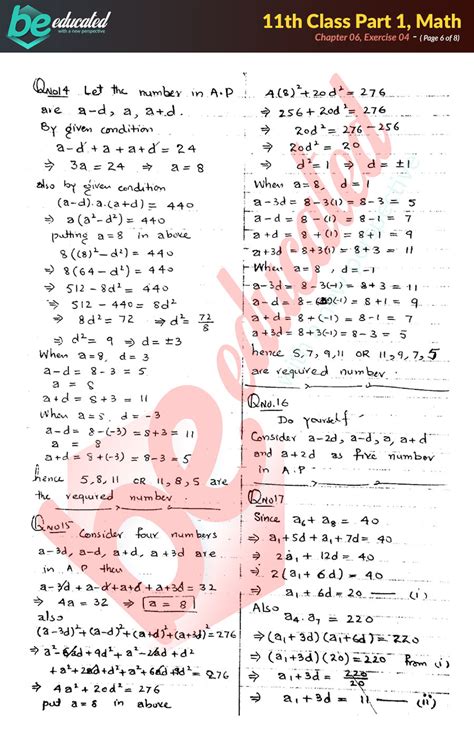 be educated
with a new perspective
11th Class Part 1, Math
Chapter 06, Exercise 04 - ( Page 6 of 8)
QNo14 Let the number in A.P
are a-d, a, a+d.
By given condition
a-d+a+a+d = 24
⇒ 3a = 24 ⇒ a = 8
also by given condition
(a-d).a.(a+d) = 440
⇒ a(a²-d²) = 440
putting a=8 in above
8((8)²-d²) = 440
⇒ 8(64-d²) = 440
⇒ 512-8d² = 440
⇒ 512-440 = 8d²
⇒ 8d² = 72 ⇒ d² = 72/8
⇒ d² = 9 ⇒ d = ±3
When a=8, d=3
a-d = 8-3 = 5
a = 8
a+d = 8+3 = 11
When a=8, d=-3
a-d = 8-(-3) = 8+3 = 11
a = 8
a+d = 8+(-3) = 8-3 = 5
hence 5,8,11 OR 11,8,5 are
the required number.
QNo15 Consider four numbers
a-3d, a-d, a+d, a+3d are
in A.P then
a-3d+a-d+a+d+a+3d = 32
⇒ 4a = 32 ⇒ a = 8
also
(a-3d)²+(a-d)²+(a+d)²+(a+3d)² = 276
⇒ a²-6ad+9d²+a²-2ad+d²
+a²+2ad+d²+a²+6ad+9d² = 276
⇒ 4a²+20d² = 276
put a=8 in above
4(8)²+20d² = 276
⇒ 256+20d² = 276
⇒ 20d² = 276-256
⇒ 20d² = 20
⇒ d² = 1 ⇒ d = ±1
When a=8, d=1
a-3d = 8-3(1) = 8-3 = 5
a-d = 8-(1) = 8-1 = 7
a+d = 8+(1) = 8+1 = 9
a+3d = 8+3(1) = 8+3 = 11
When a=8, d=-1
a-3d = 8-3(-1) = 8+3 = 11
a-d = 8-(-1) = 8+1 = 9
a+d = 8+(-1) = 8-1 = 7
a+3d = 8+3(-1) = 8-3 = 5
hence 5,7,9,11 OR 11,9,7,5
are required number.
QNo.16
Do yourself
Consider a-2d, a-d, a, a+d
and a+2d as five number
in A.P
QNo17
Since a₆+a₈ = 40
⇒ a₁+5d+a₁+7d = 40
⇒ 2a₁+12d = 40
⇒ 2(a₁+6d) = 40
⇒ a₁+6d = 20 — (i)
Also
a₄.a₇ = 220
⇒ (a₁+3d)(a₁+6d) = 220
⇒ (a₁+3d)(20) = 220 from (i)
⇒ a₁+3d = 220/20
⇒ a₁+3d = 11 — (ii)